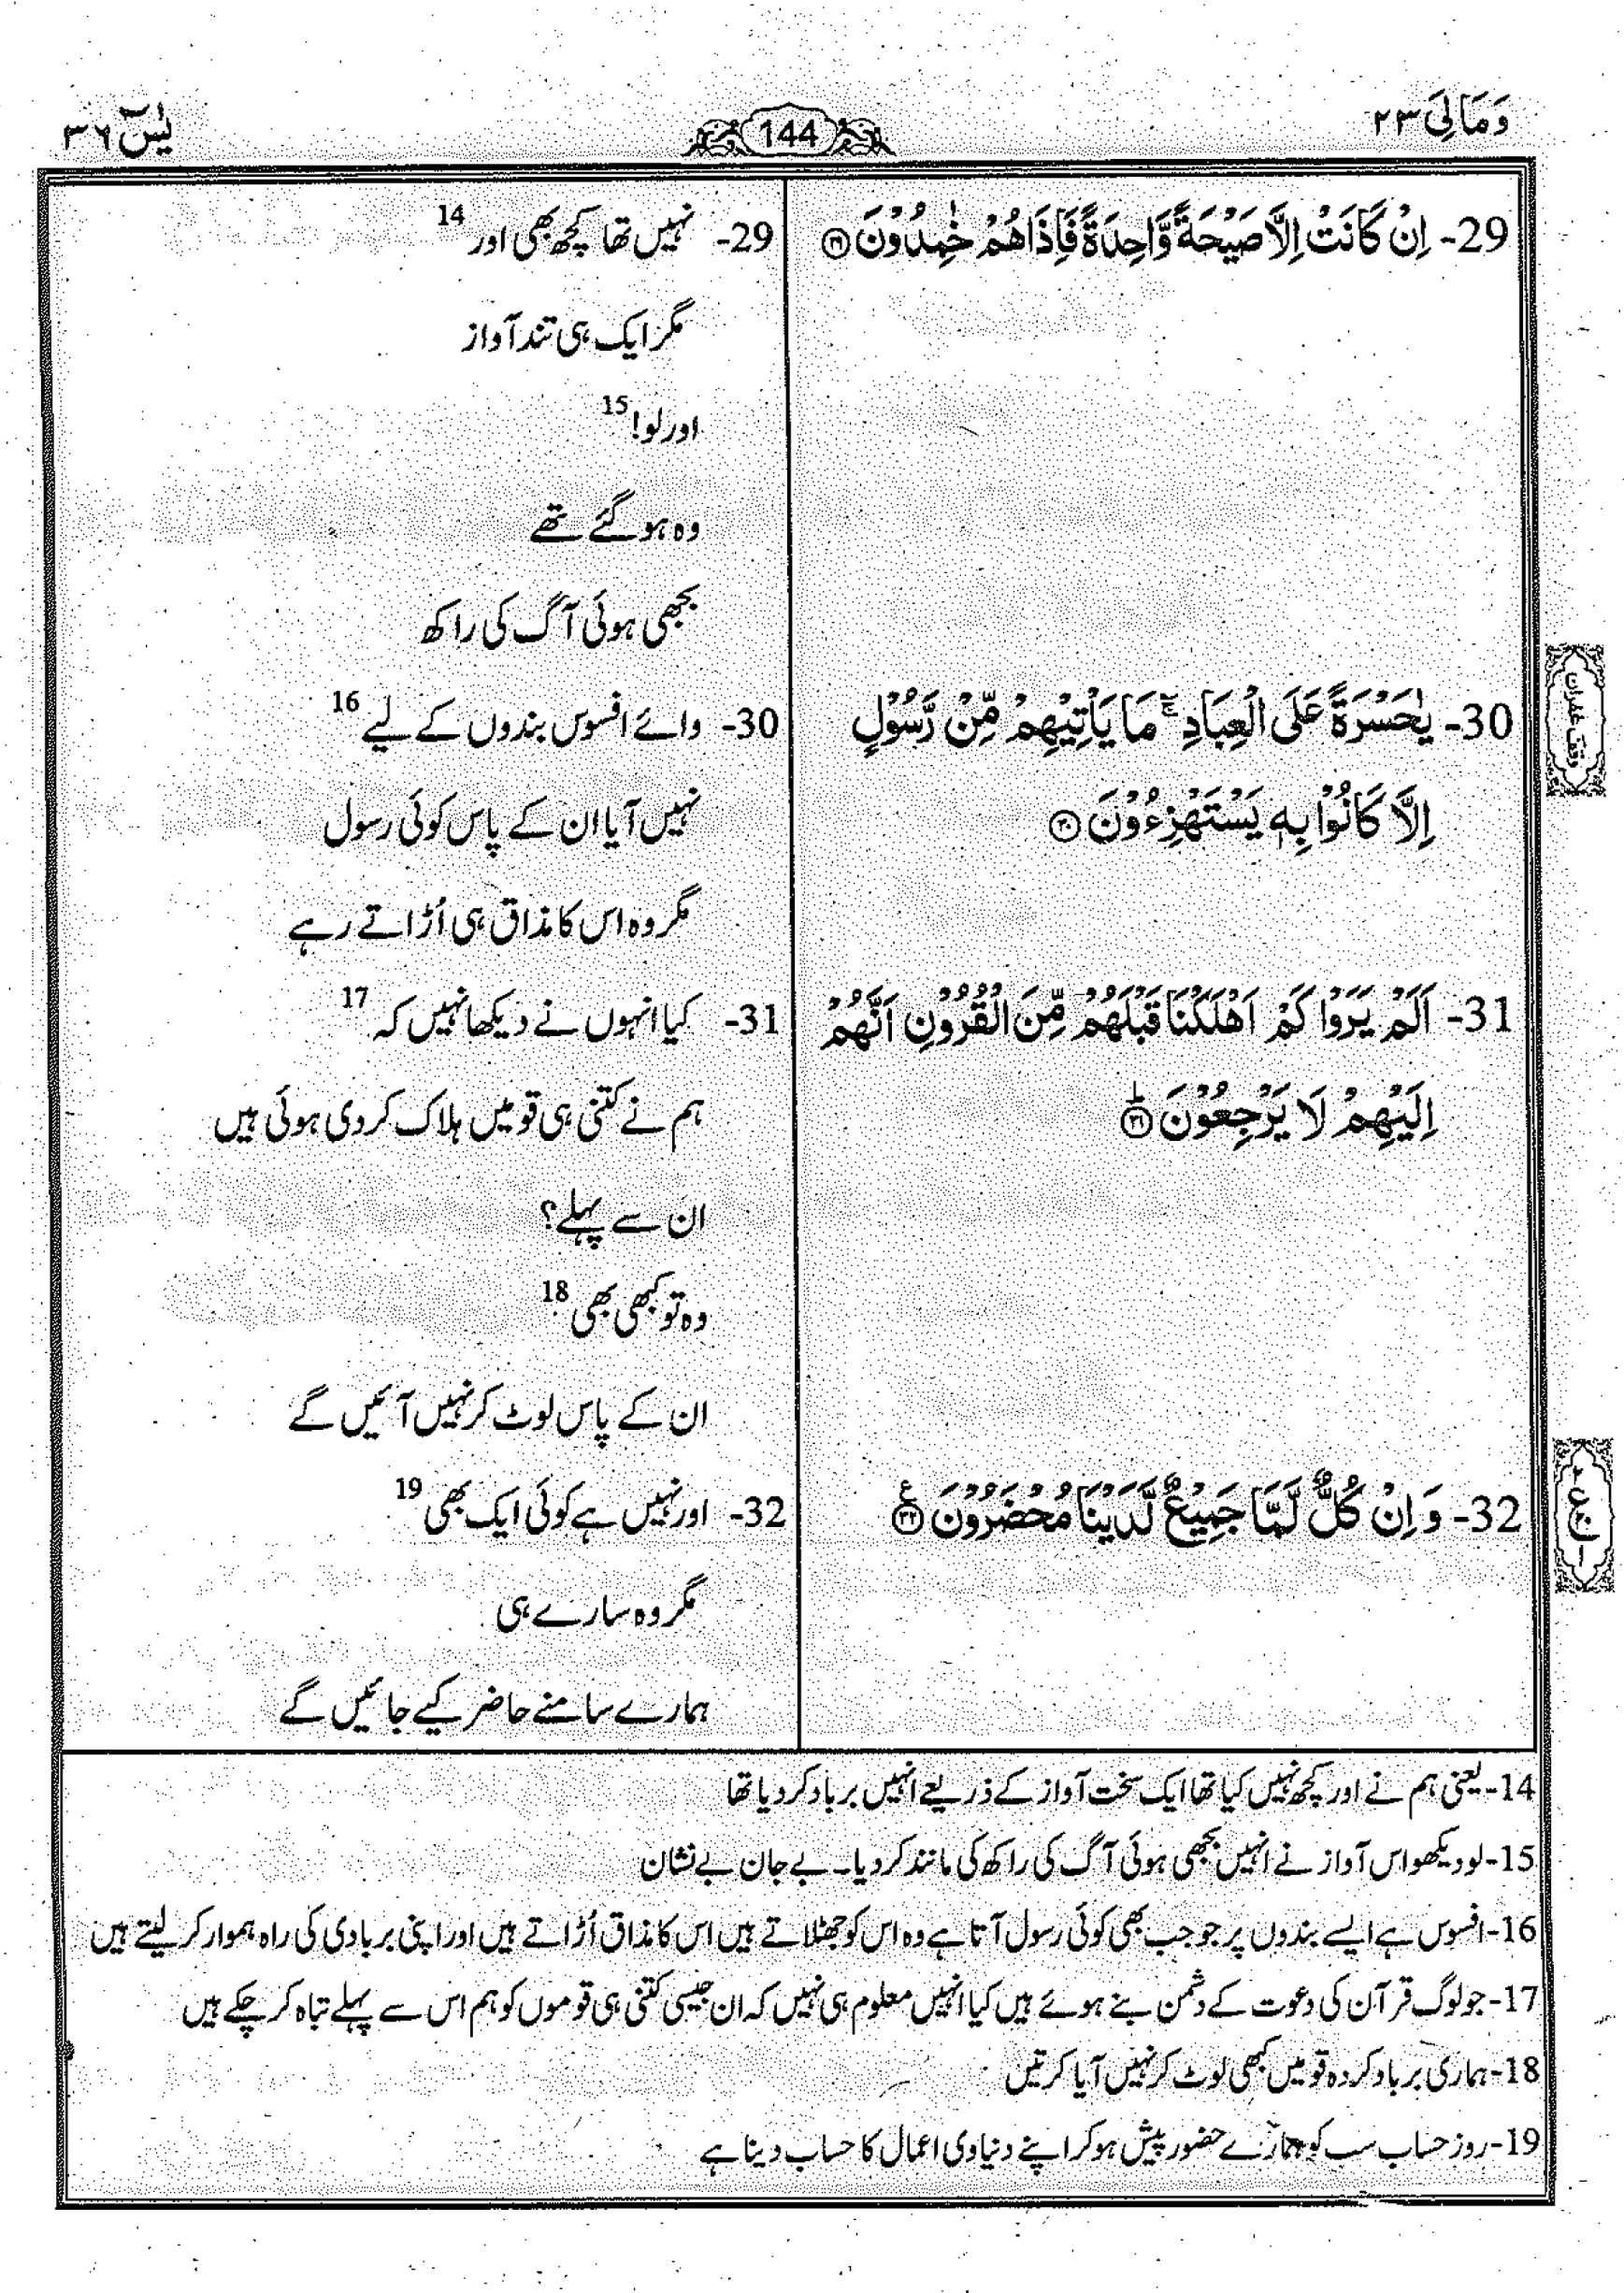 وَمَالِیَ ۲۳
144
یٰسٓ ۳۶
29- اِنْ كَانَتْ اِلَّا صَیْحَةً وَّاحِدَةً فَاِذَا هُمْ خٰمِدُوْنَ ۝۲۹
29- نہیں تھا کچھ بھی اور 14
مگر ایک ہی تند آواز
اور لو! 15
وہ ہو گئے تھے
بجھی ہوئی آگ کی راکھ
30- یٰحَسْرَةً عَلَی الْعِبَادِ ۚ مَا یَاْتِیْهِمْ مِّنْ رَّسُوْلٍ
اِلَّا كَانُوْا بِهٖ یَسْتَهْزِءُوْنَ ۝۳۰
وقف غفران
30- وائے افسوس بندوں کے لیے 16
نہیں آیا ان کے پاس کوئی رسول
مگر وہ اس کا مذاق ہی اُڑاتے رہے
31- اَلَمْ یَرَوْا كَمْ اَهْلَكْنَا قَبْلَهُمْ مِّنَ الْقُرُوْنِ اَنَّهُمْ
اِلَیْهِمْ لَا یَرْجِعُوْنَ ؕ۝۳۱
31- کیا انہوں نے دیکھا نہیں کہ 17
ہم نے کتنی ہی قومیں ہلاک کر دی ہوئی ہیں
ان سے پہلے؟
وہ تو کبھی بھی 18
ان کے پاس لوٹ کر نہیں آئیں گے
32- وَ اِنْ كُلٌّ لَّمَّا جَمِیْعٌ لَّدَیْنَا مُحْضَرُوْنَ ۝۳۲ ع
32- اور نہیں ہے کوئی ایک بھی 19
مگر وہ سارے ہی
ہمارے سامنے حاضر کیے جائیں گے
14- یعنی ہم نے اور کچھ نہیں کیا تھا ایک سخت آواز کے ذریعے انہیں برباد کر دیا تھا
15- لو دیکھو اس آواز نے انہیں بجھی ہوئی آگ کی راکھ کی مانند کر دیا۔ بے جان بے نشان
16- افسوس ہے ایسے بندوں پر جو جب بھی کوئی رسول آتا ہے وہ اس کو جھٹلاتے ہیں اس کا مذاق اُڑاتے ہیں اور اپنی بربادی کی راہ ہموار کر لیتے ہیں
17- جو لوگ قرآن کی دعوت کے دشمن بنے ہوئے ہیں کیا انہیں معلوم ہی نہیں کہ ان جیسی کتنی ہی قوموں کو ہم اس سے پہلے تباہ کر چکے ہیں
18- ہماری برباد کردہ قومیں کبھی لوٹ کر نہیں آیا کرتیں
19- روز حساب سب کو ہمارے حضور پیش ہو کر اپنے دنیاوی اعمال کا حساب دینا ہے